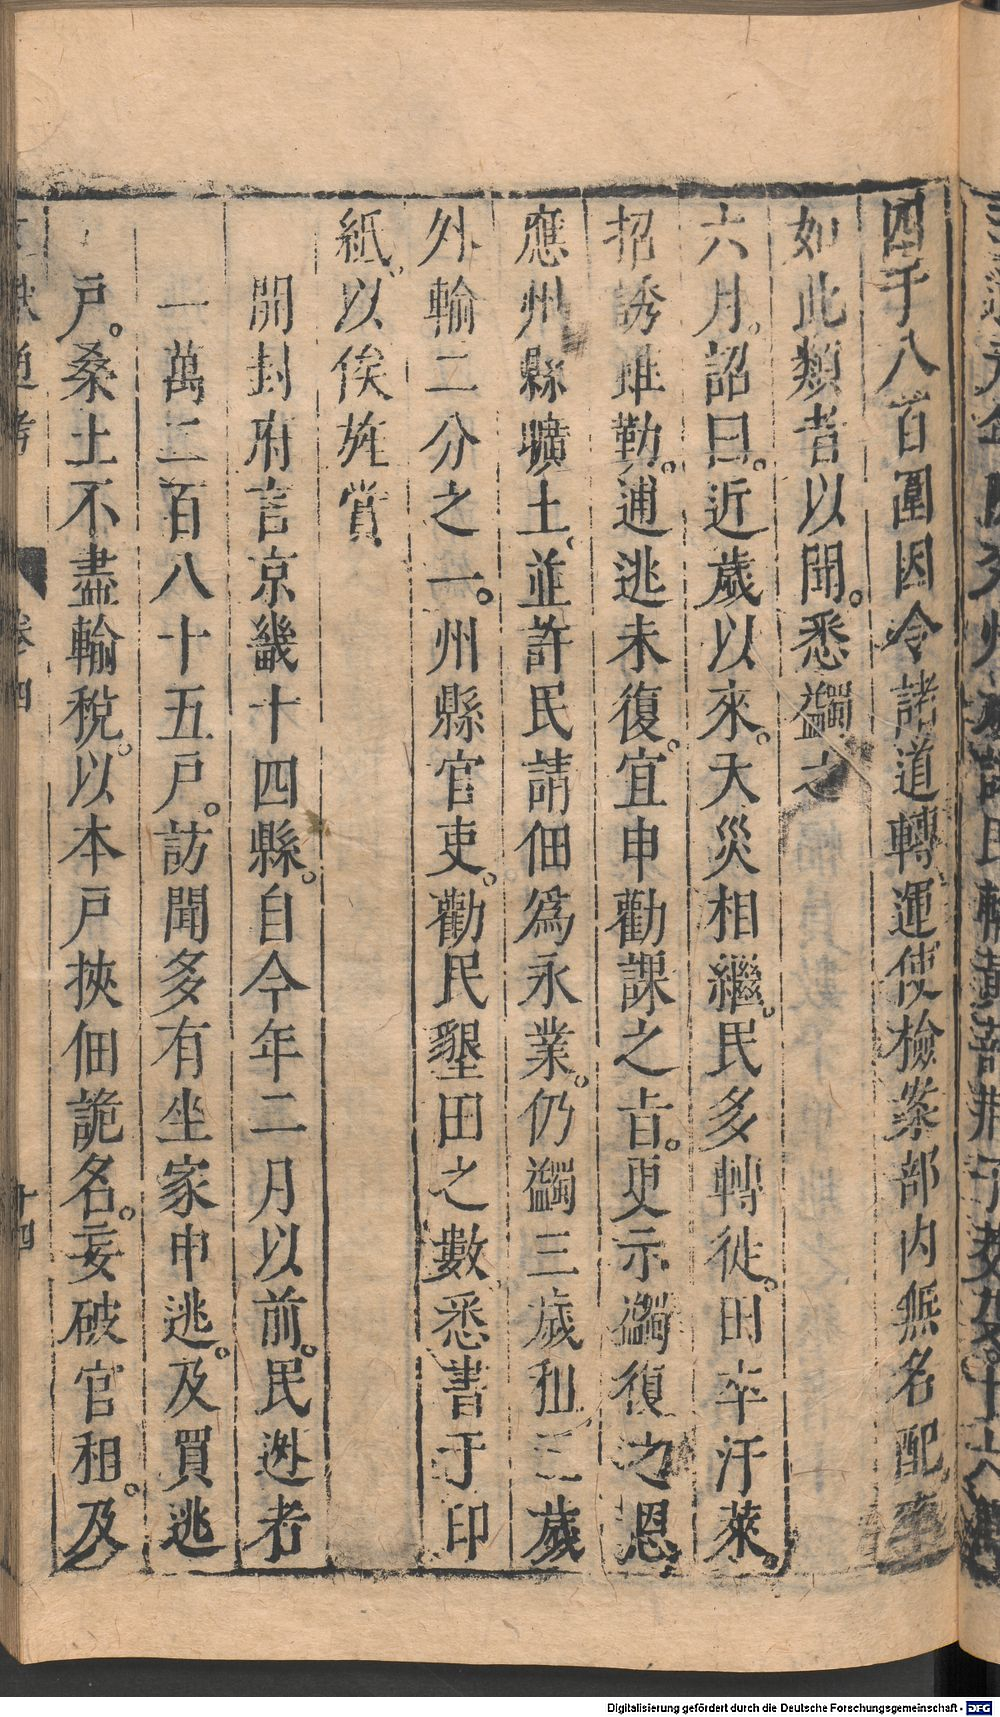 四千八百圍因令諸道轉運使檢案部内無名配率
如此類者以聞。悉蠲之
六月。詔曰。近歲以來。天災相繼。民多轉徙。田卒汙萊。
招誘雖勤。逋逃未復。宜申勸課之旨。更示蠲復之恩。
應州縣曠土。並許民請佃爲永業。仍蠲三歲租三歲
外輸二分之一。州縣官吏。勸民墾田之數。悉書于印
紙。以俟旌賞
開封府言京畿十四縣。自今年二月以前。民逃者
一萬二百八十五戸。訪聞多有坐家申逃。及買逃
戸。桑土不盡輸稅。以本戸挾佃詭名。妄破官租。及
通考
卷四
十四
Digitalisierung gefördert durch die Deutsche Forschungsgemeinschaft - DFG